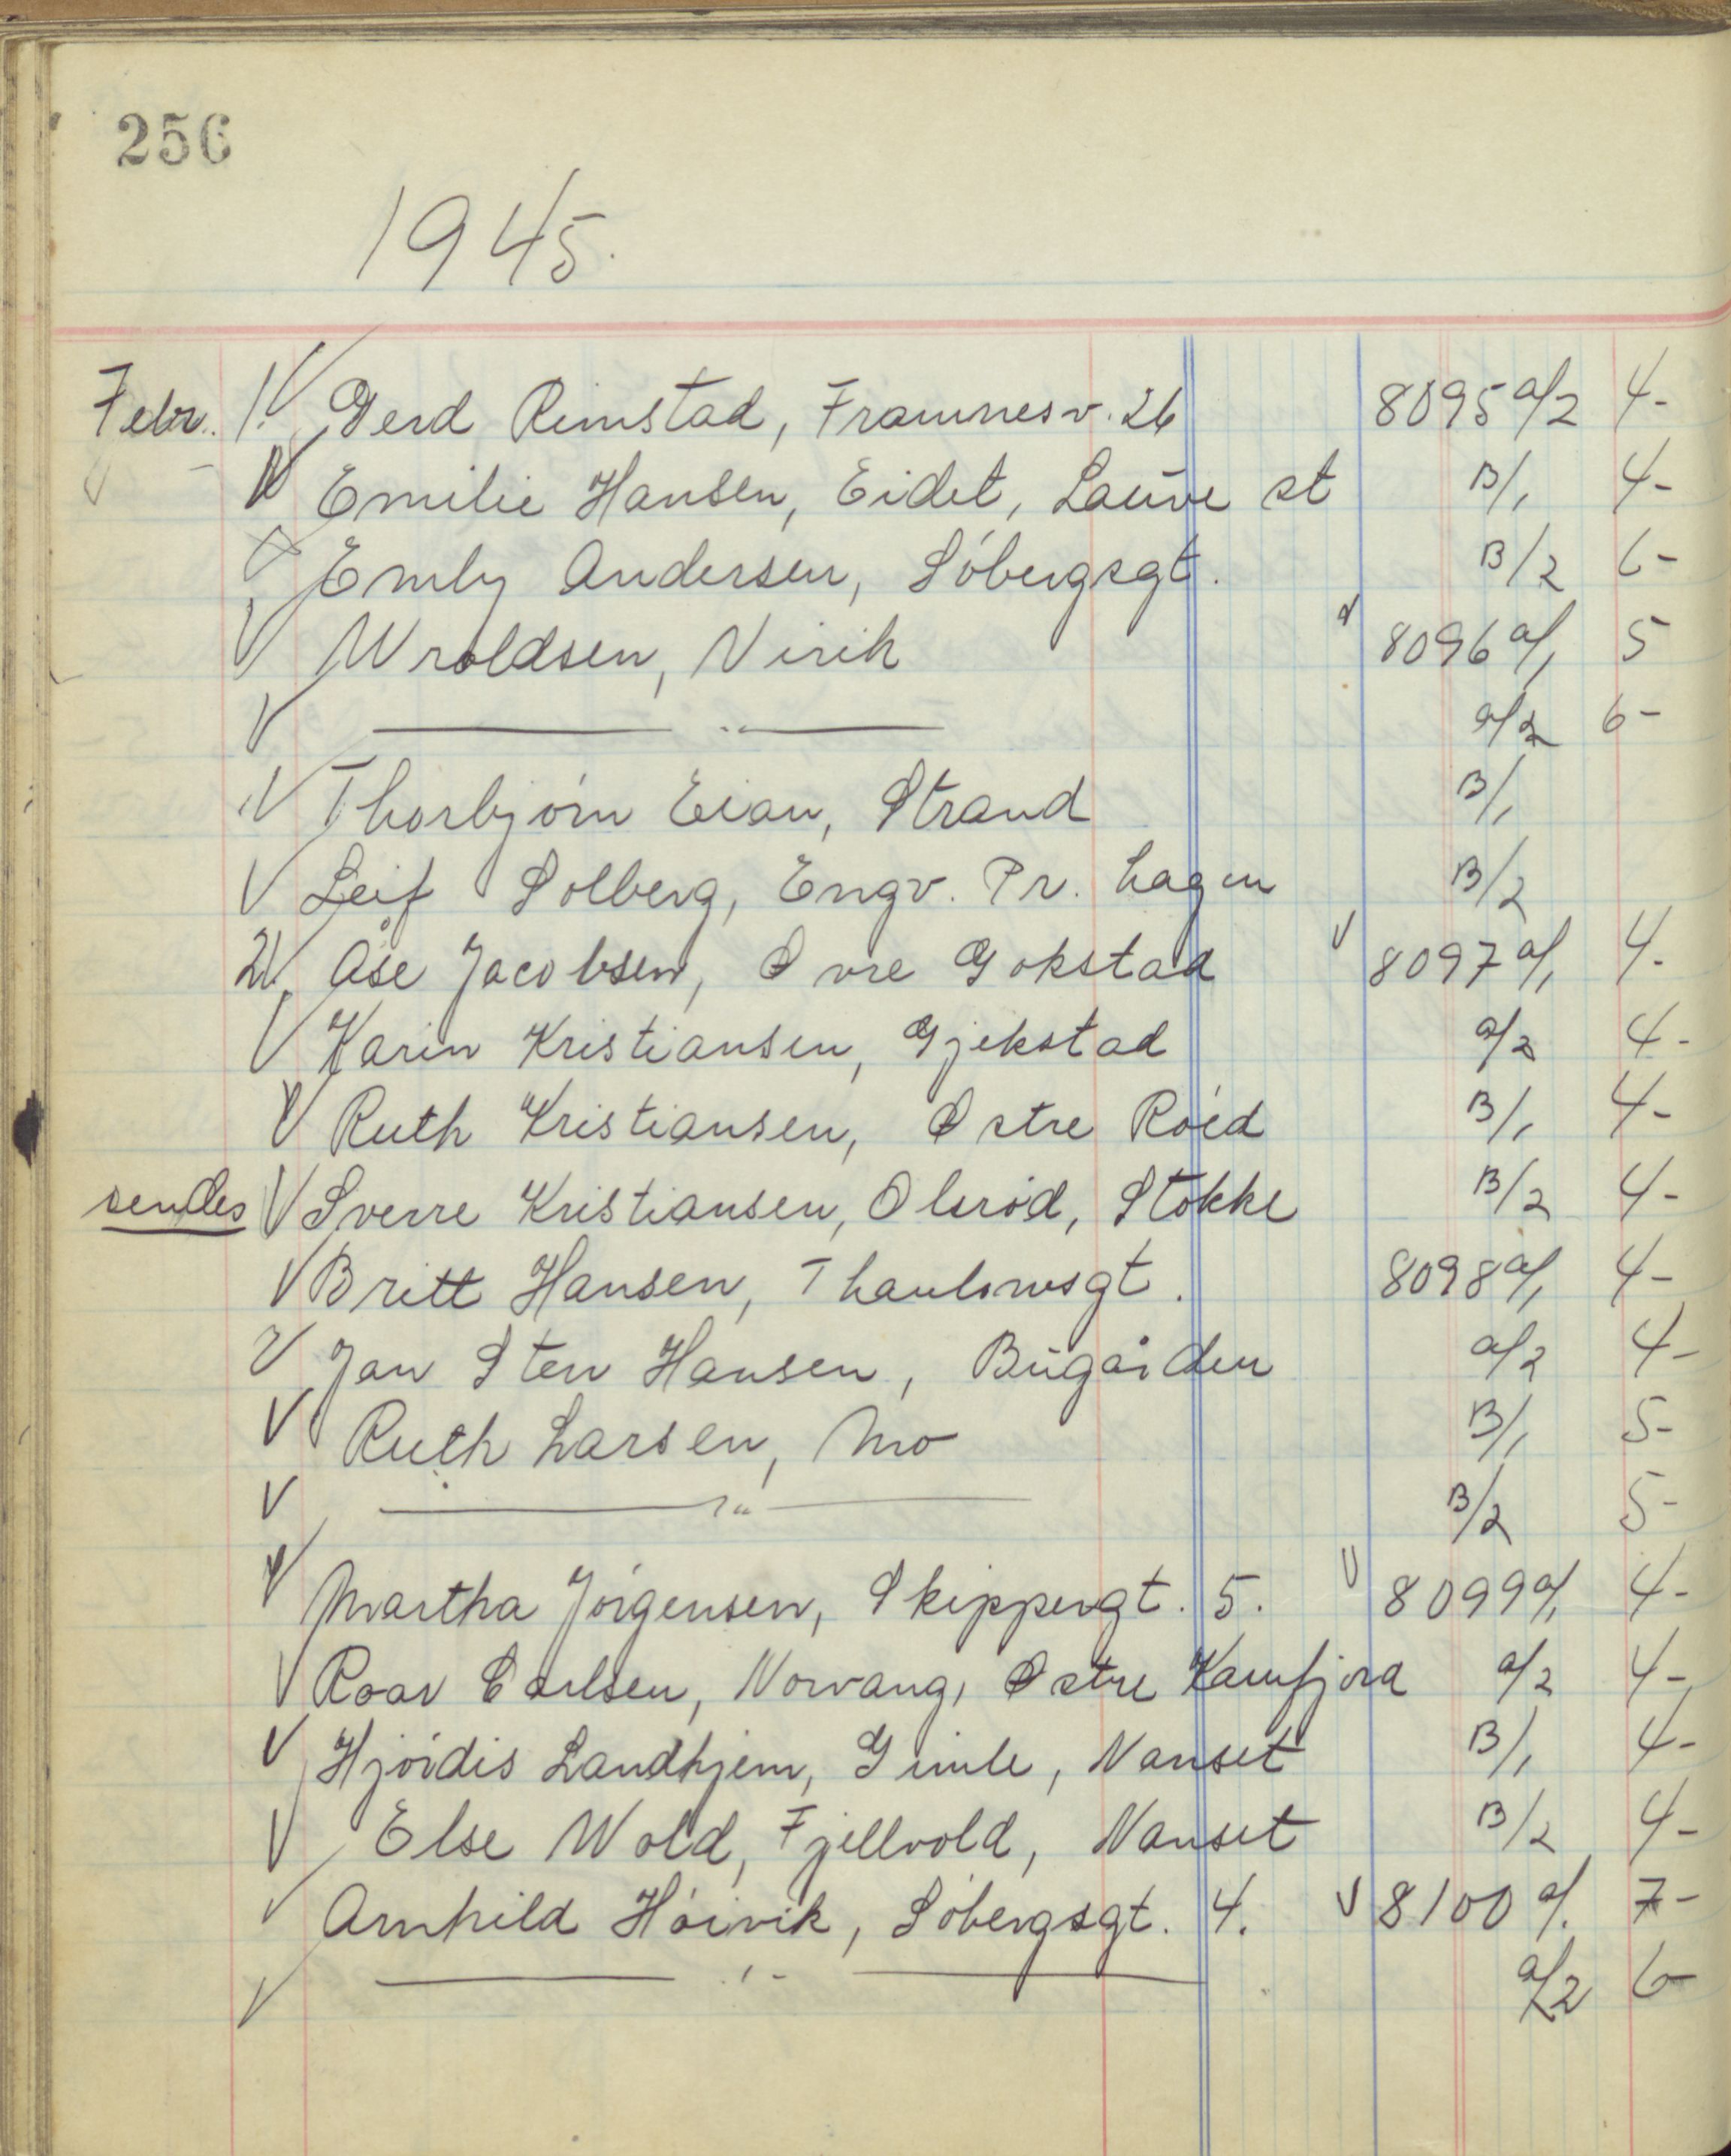 256
1945.
Febr. 1. V Gerd Rimstad, Framnesv. 26 8095 a/2 4-
V Emilie Hansen, Eidet, Lauve st B/1 4-
Emly Andersen, Söbergsgt. B/2 6-
V Wroldsen, Virik 8096 a/1 5
V —— " —— a/2 6-
V Thorbjörn Eian, Strand B/1
V Leif Solberg, Engv. Pr. Lagen B/2
2. V Åse Jacobsen, Øvre Gokstad V 8097 a/1 4-
V Karin Kristiansen, Gjekstad a/2 4-
V Ruth Kristiansen, Østre Röed B/1 4-
sendes V Sverre Kristiansen, Olsröd, Stokke B/2 4-
V Britt Hansen, Thaulowsgt. 8098 a/1 4-
V Jan Sten Hansen, Bugården a/2 4-
V Ruth Larsen, Mo B/1 5-
V —— " —— B/2 5-
V Martha Jörgensen, Skippergt. 5. V 8099 a/1 4-
V Roar Carlsen, Norvang, Østre Kamfjord a/2 4-
V Hjördis Landhjem, Gimle, Nanset B/1 4-
V Else Wold, Fjellvold, Nanset B/2 4-
V Arnhild Höivik, Söbergsgt. 4. V 8100 a/1 7-
V —— " —— a/2 6-